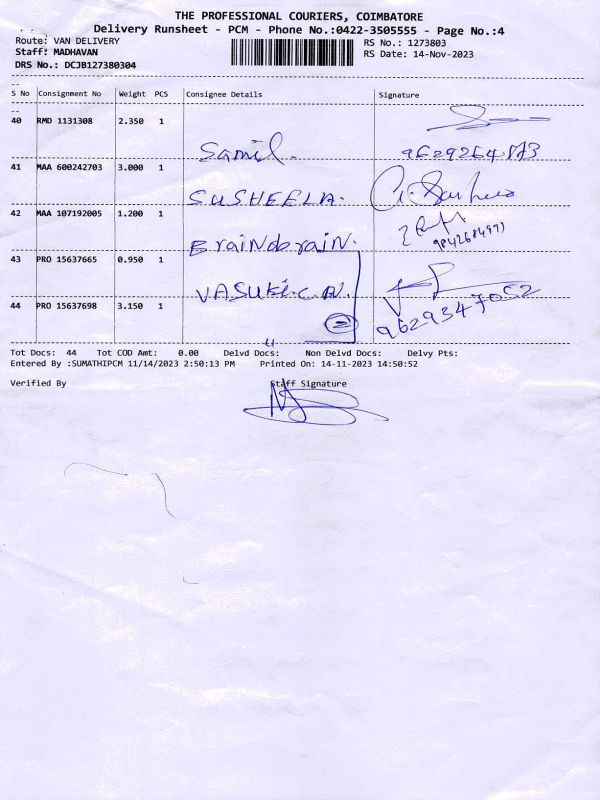 THE PROFESSIONAL COURIERS, COIMBATORE
Delivery Runsheet - PCM - Phone No.:0422-3505555 - Page No.:4
Route: VAN DELIVERY
RS No.: 1273803
Staff: MADHAVAN
RS Date: 14-Nov-2023
DRS No.: DCJB127380304
S No Consignment No Weight PCS Consignee Details Signature
40 RMD 1131308 2.350 1
Samil. 9629264
41 MAA 600242703 3.000 1
SUSHEELA.
42 MAA 107192005 1.200 1
BrainObrain.
43 PRO 15637665 0.950 1
VASUKI.C.N.
44 PRO 15637698 3.150 1
2 9629347052
Tot Docs: 44 Tot COD Amt: 0.00 Delvd Docs: Non Delvd Docs: Delvy Pts:
Entered By :SUMATHIPCM 11/14/2023 2:50:13 PM Printed On: 14-11-2023 14:50:52
Verified By Staff Signature